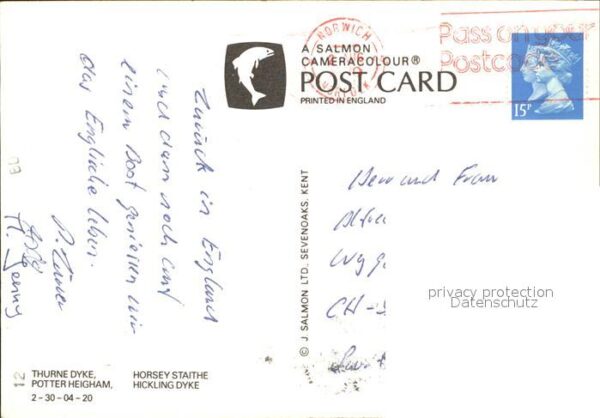 A SALMON
CAMERACOLOUR®
POST CARD
PRINTED IN ENGLAND
NORWICH
NORFOLK
Pass on your
Postcode
15P
Zurück in England
und dann noch auf
einem Boot geniessen wir
das Englische leben.
Herr und Frau
CH-
© J. SALMON LTD., SEVENOAKS, KENT
privacy protection
Datenschutz
12
THURNE DYKE,
POTTER HEIGHAM,
HORSEY STAITHE
HICKLING DYKE
2-30-04-20